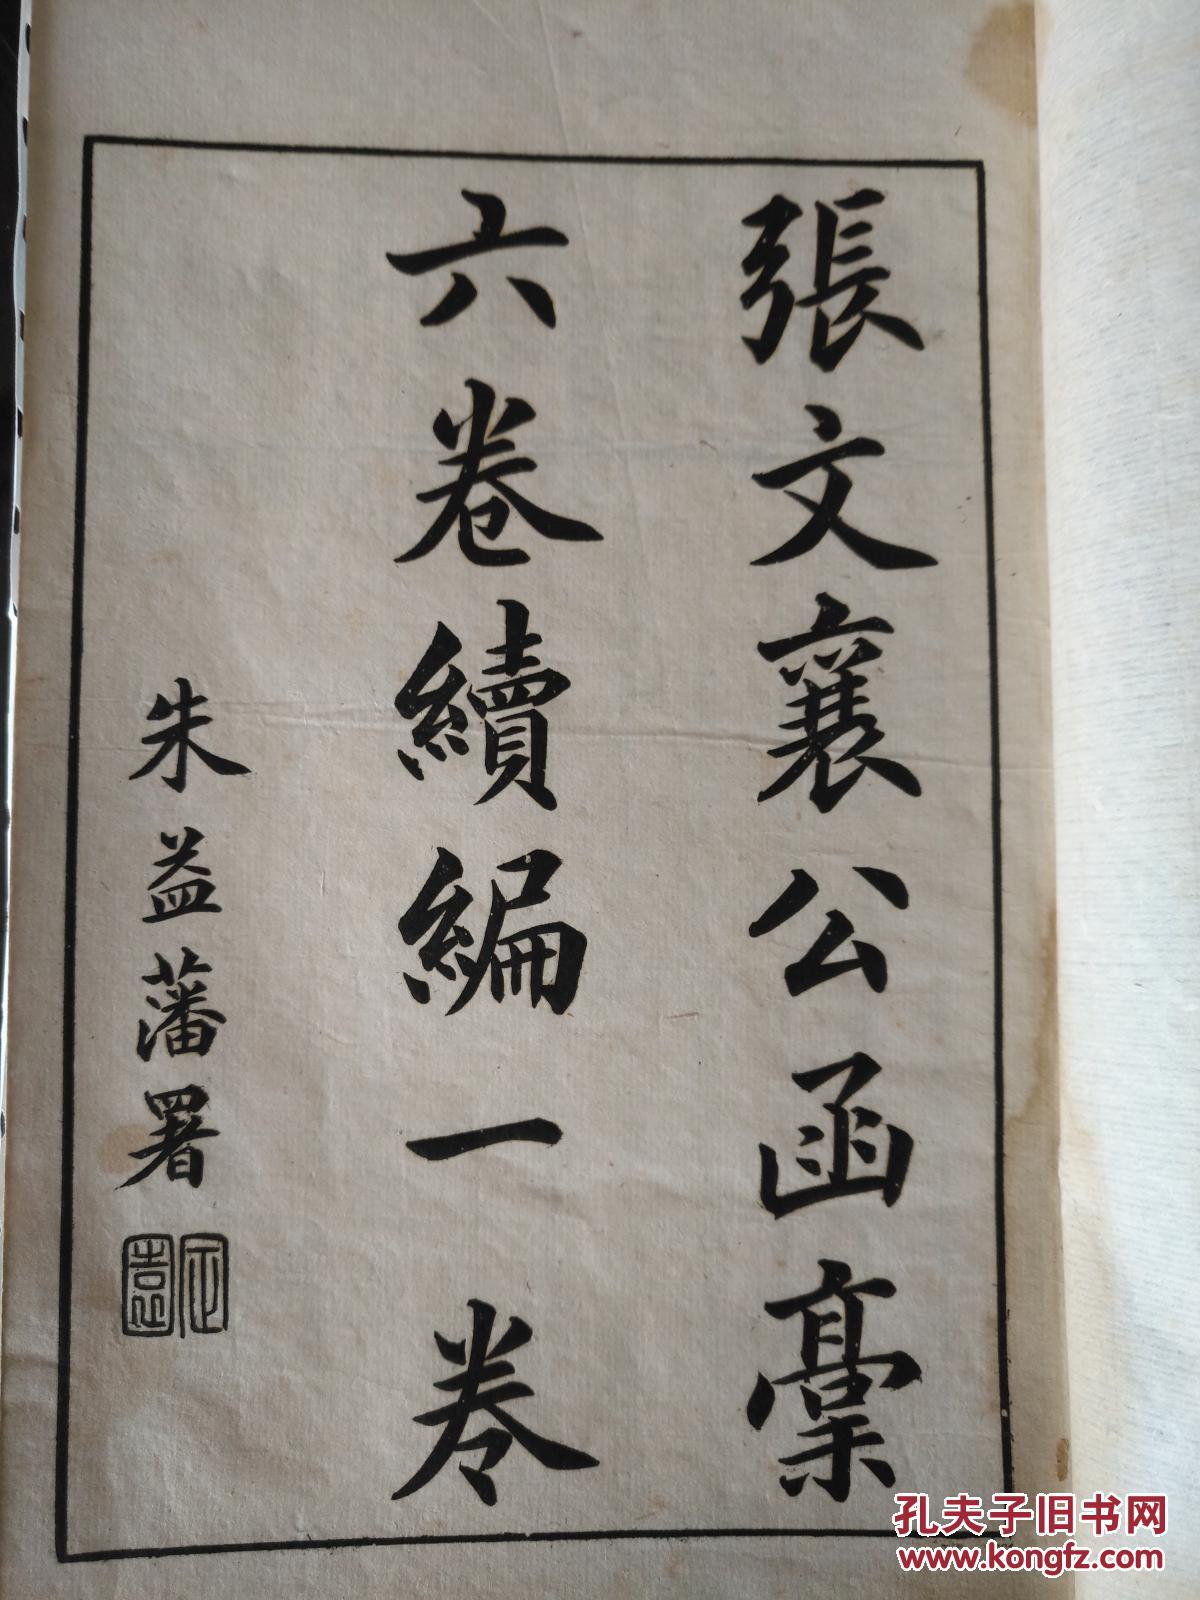 張文襄公函稾
六卷續編一卷
朱益藩署
孔夫子旧书网
www.kongfz.com